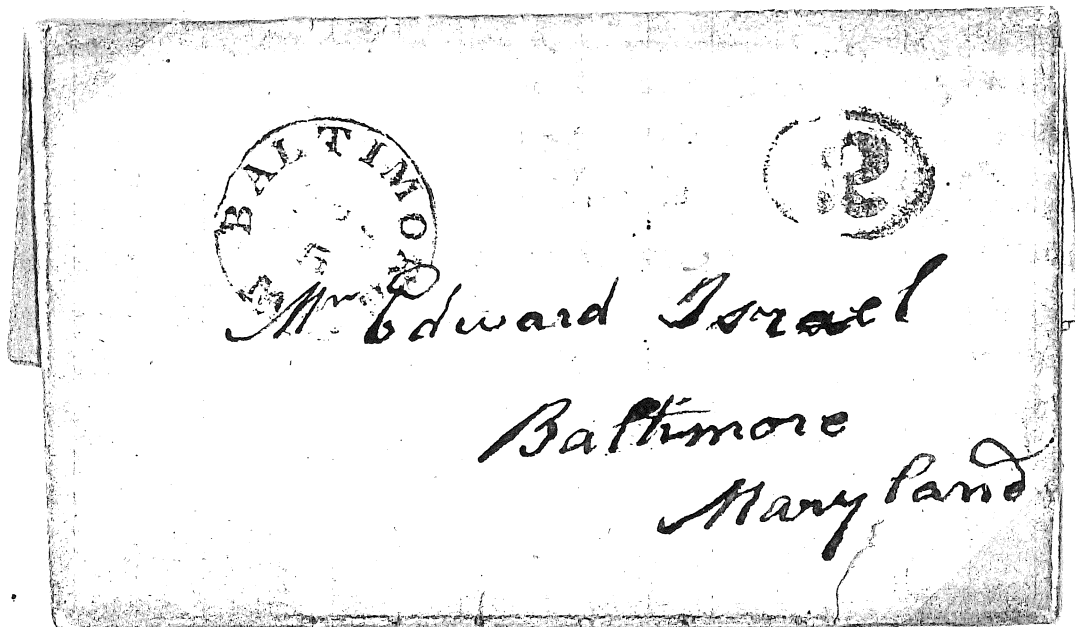 BALTIMORE
2
Mr Edward Israel
Baltimore
Maryland